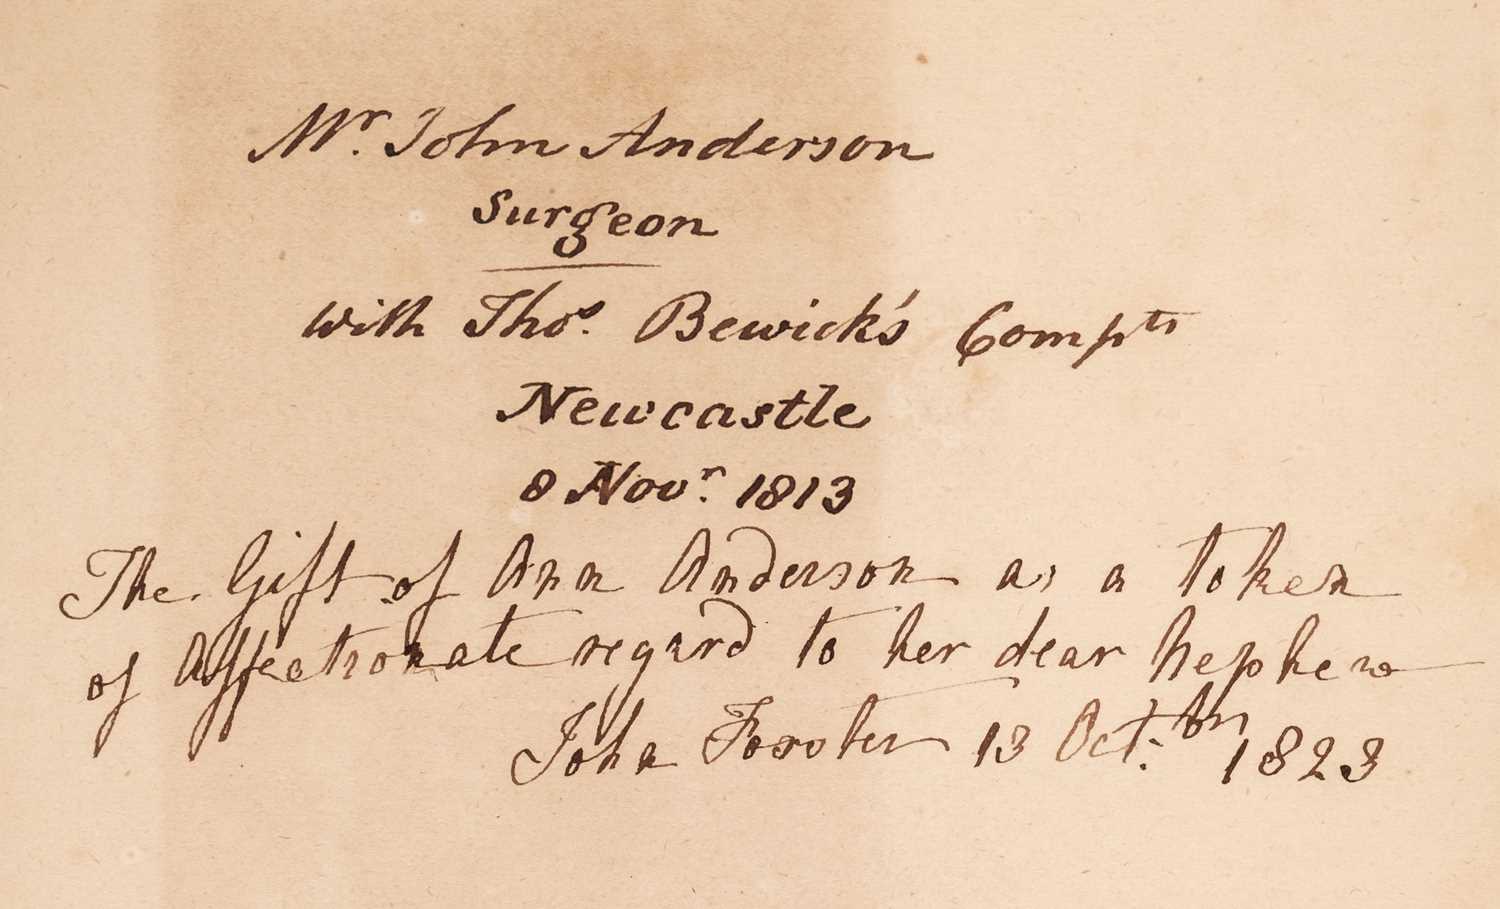 Mr. John Anderson
Surgeon
with Thos. Bewick's Compts
Newcastle
8 Novr. 1813
The Gift of Ann Anderson as a token
of Affectionate regard to her dear Nephew
John Forster 13 Oct.br 1823